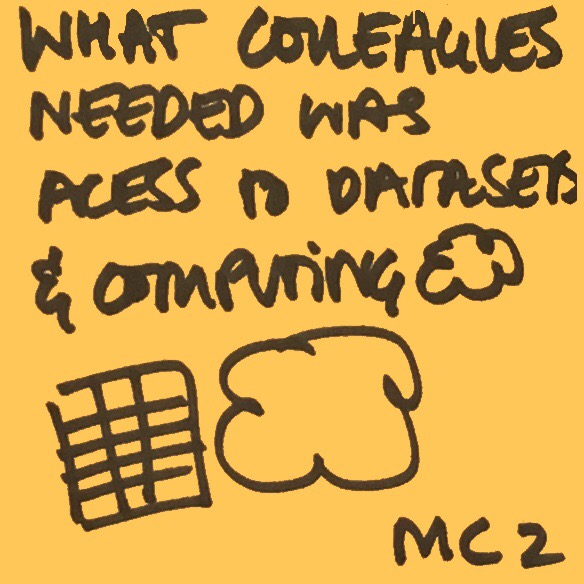 WHAT COLLEAGUES
NEEDED WAS
ACESS TO DATASETS
& COMPUTING
MC2